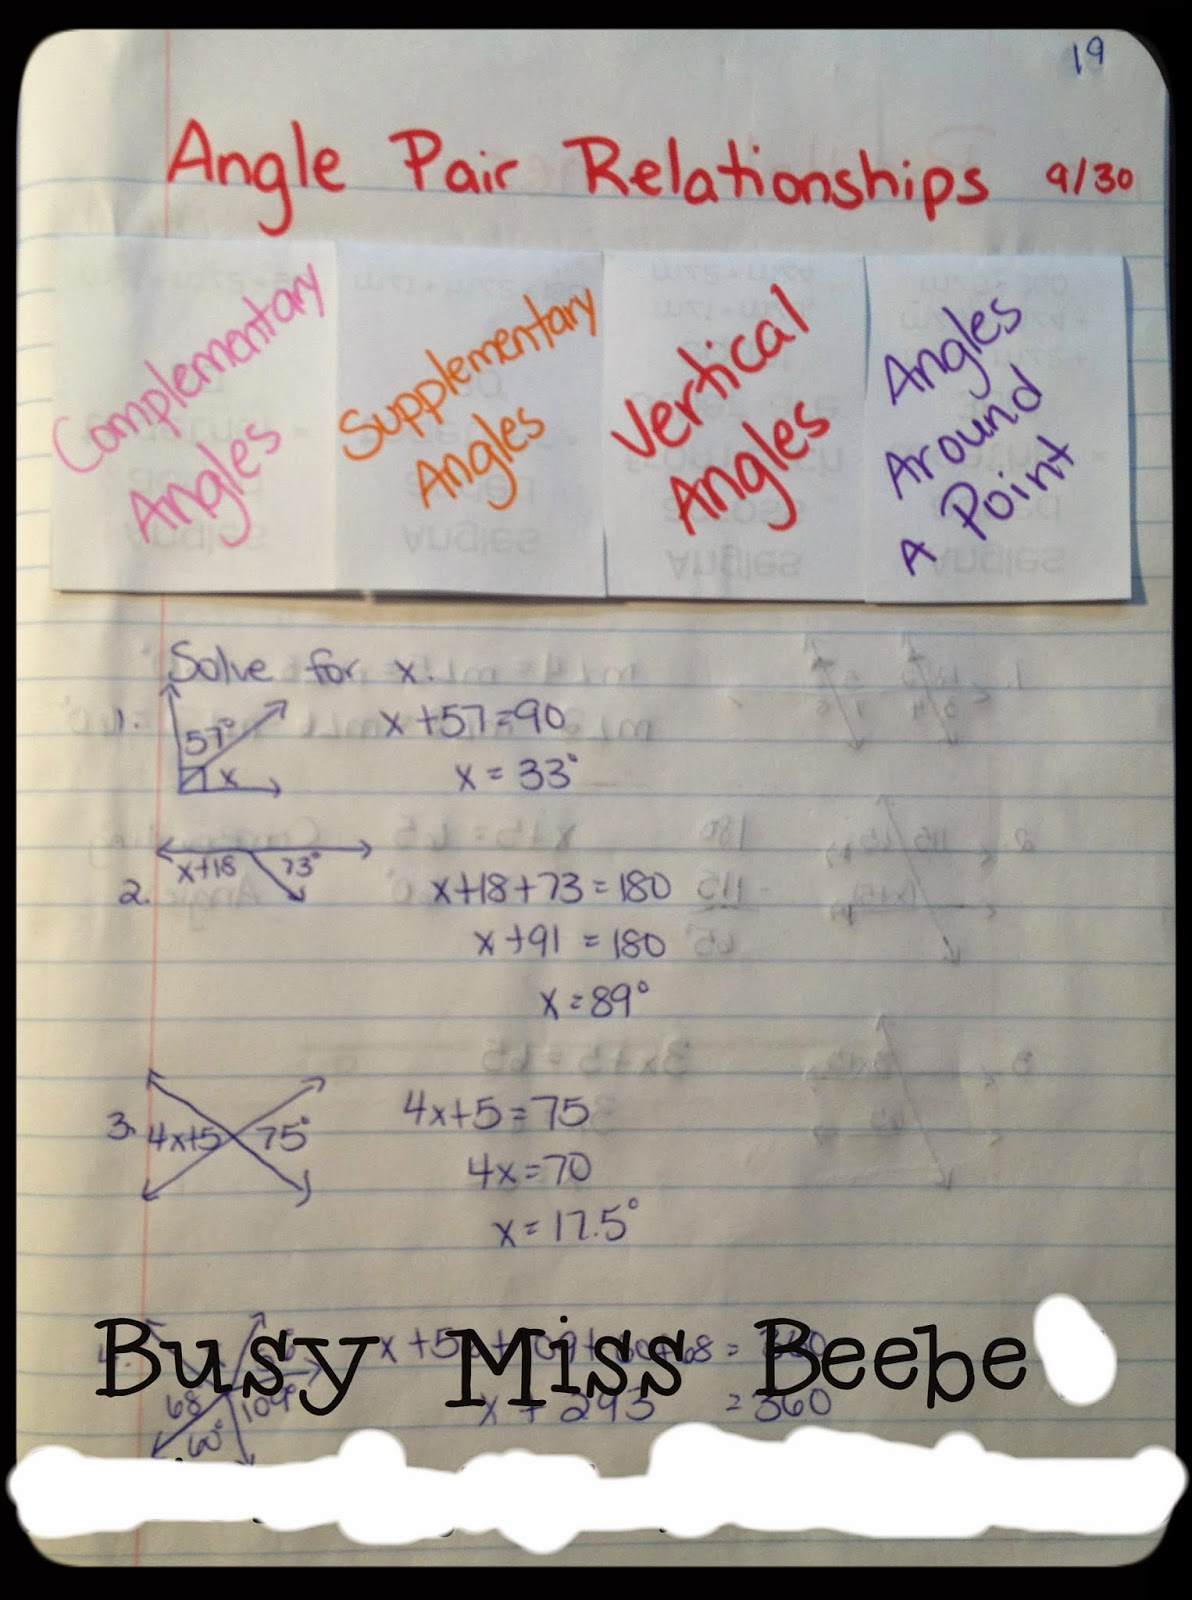 19
Angle Pair Relationships 9/30
Complementary
Angles
Supplementary
Angles
Vertical
Angles
Angles
Around
A Point
Solve for x.
1.
57°
x
x+57=90
x = 33°
2.
x+18 73°
x+18+73=180
x+91 = 180
x=89°
3.
4x+5 75°
4x+5=75
4x=70
x=17.5°
Busy Miss Beebe
68
109°
60°
x + 293 = 360